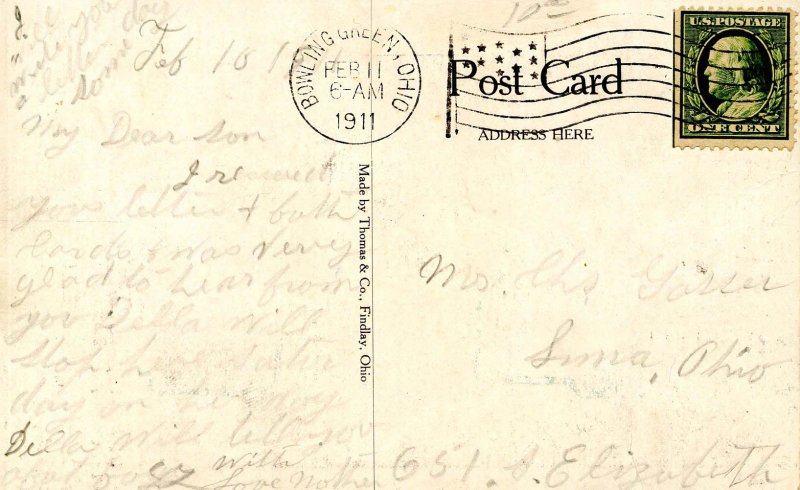 I
will
write you
a letter
some day
Feb 10 1911
My Dear Son
I received
your letter & both
Cards & was very
glad to hear from
you Della Will
stop here Satur
day on her way
Della Will tell you
with
Love Mother
10¢
BOWLING GREEN, OHIO
FEB 11
6-AM
1911
U.S. POSTAGE
ONE CENT
Post Card
ADDRESS HERE
Made by Thomas & Co., Findlay, Ohio
Mr. Chs. Gasser
Lima, Ohio
651. S. Elizabeth